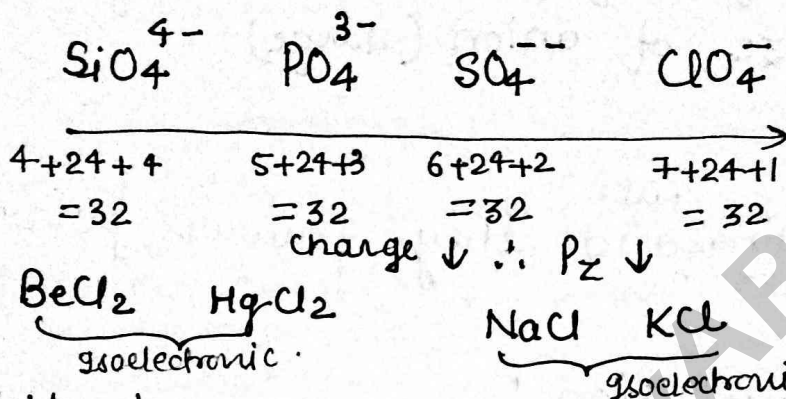 SiO₄⁴⁻ PO₄³⁻ SO₄⁻⁻ ClO₄⁻
4+24+4 5+24+3 6+24+2 7+24+1
=32 =32 =32 = 32
charge ↓ ∴ Pz ↓
BeCl₂ HgCl₂ NaCl KCl
Isoelectronic. Isoelectroni